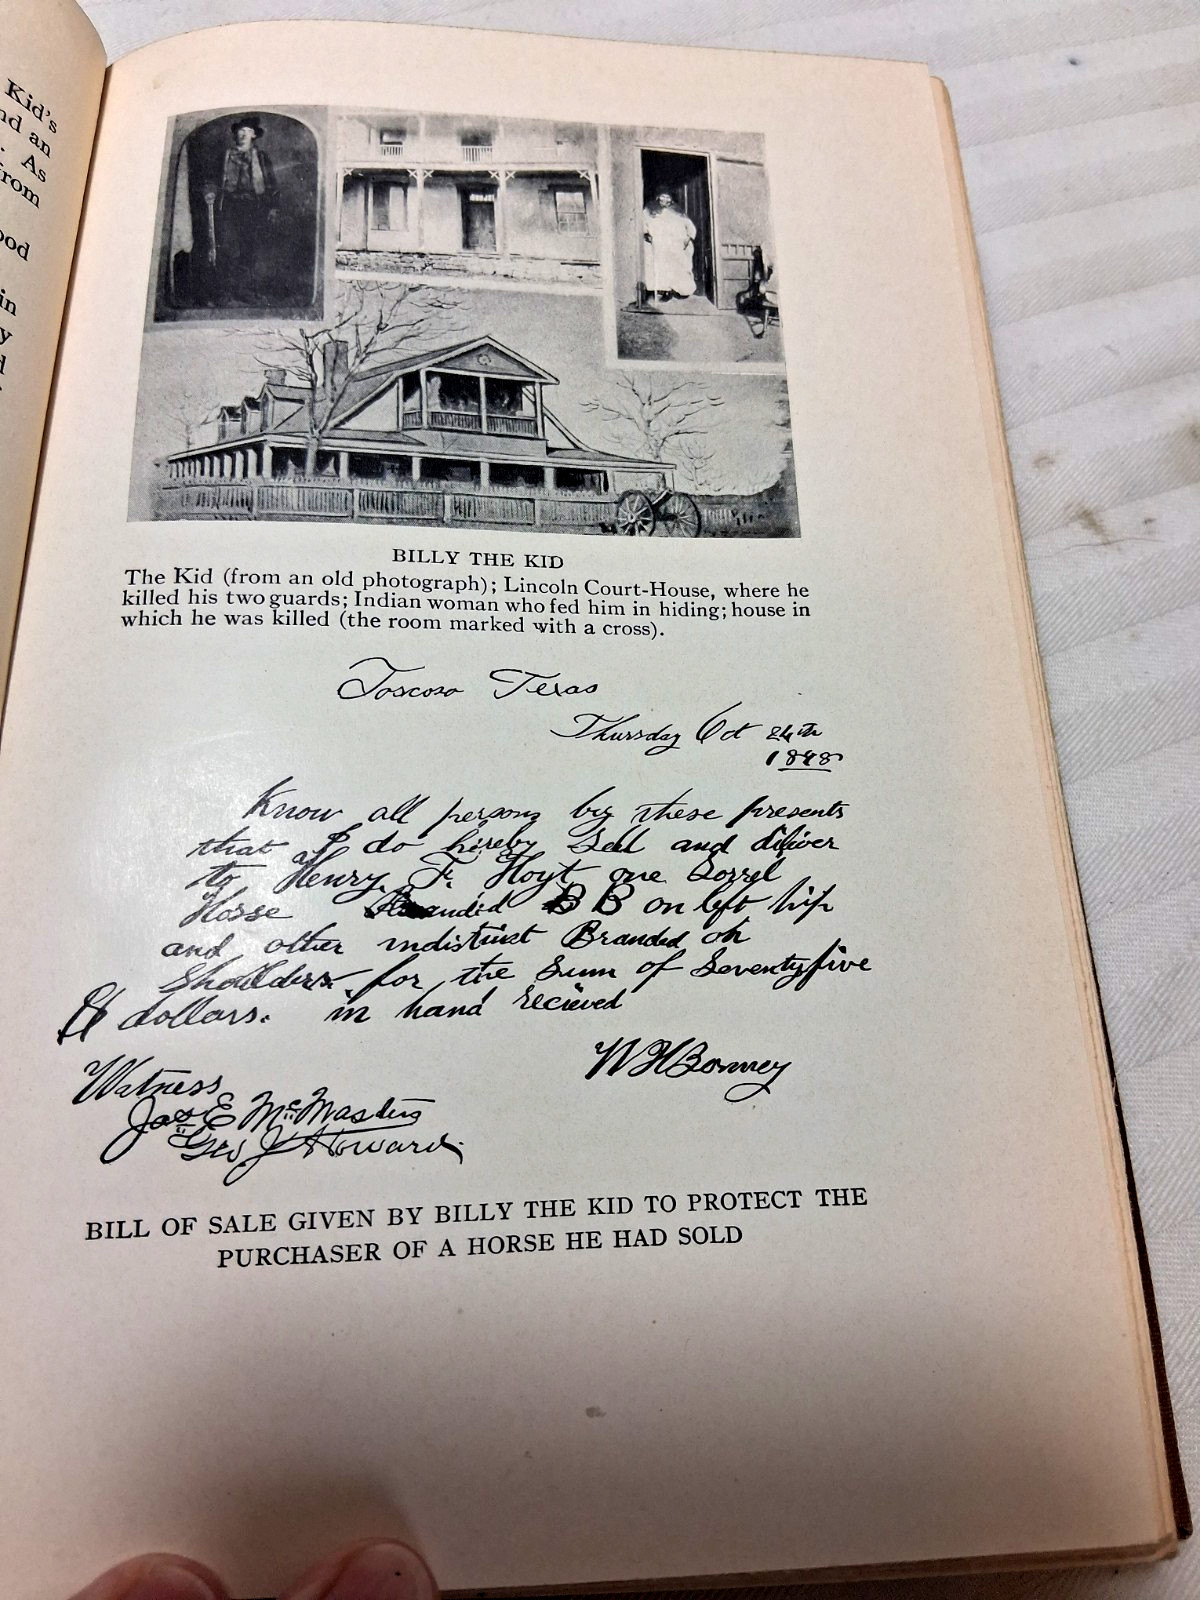 Kid's
nd an
. As
from
ood
in
y
d
BILLY THE KID
The Kid (from an old photograph); Lincoln Court-House, where he
killed his two guards; Indian woman who fed him in hiding; house in
which he was killed (the room marked with a cross).
Toscoso Texas
Thursday Oct 24th
1878
Know all persons by these presents
that I do hereby Sell and diliver
to Henry F. Hoyt one Sorrel
Horse Branded BB on left hip
and other indistinct Branded on
Shoulders for the Sum of Seventyfive
dollars. in hand recieved
W H Bonney
Witness
Jas E McMasters
Geo J Howard
BILL OF SALE GIVEN BY BILLY THE KID TO PROTECT THE
PURCHASER OF A HORSE HE HAD SOLD